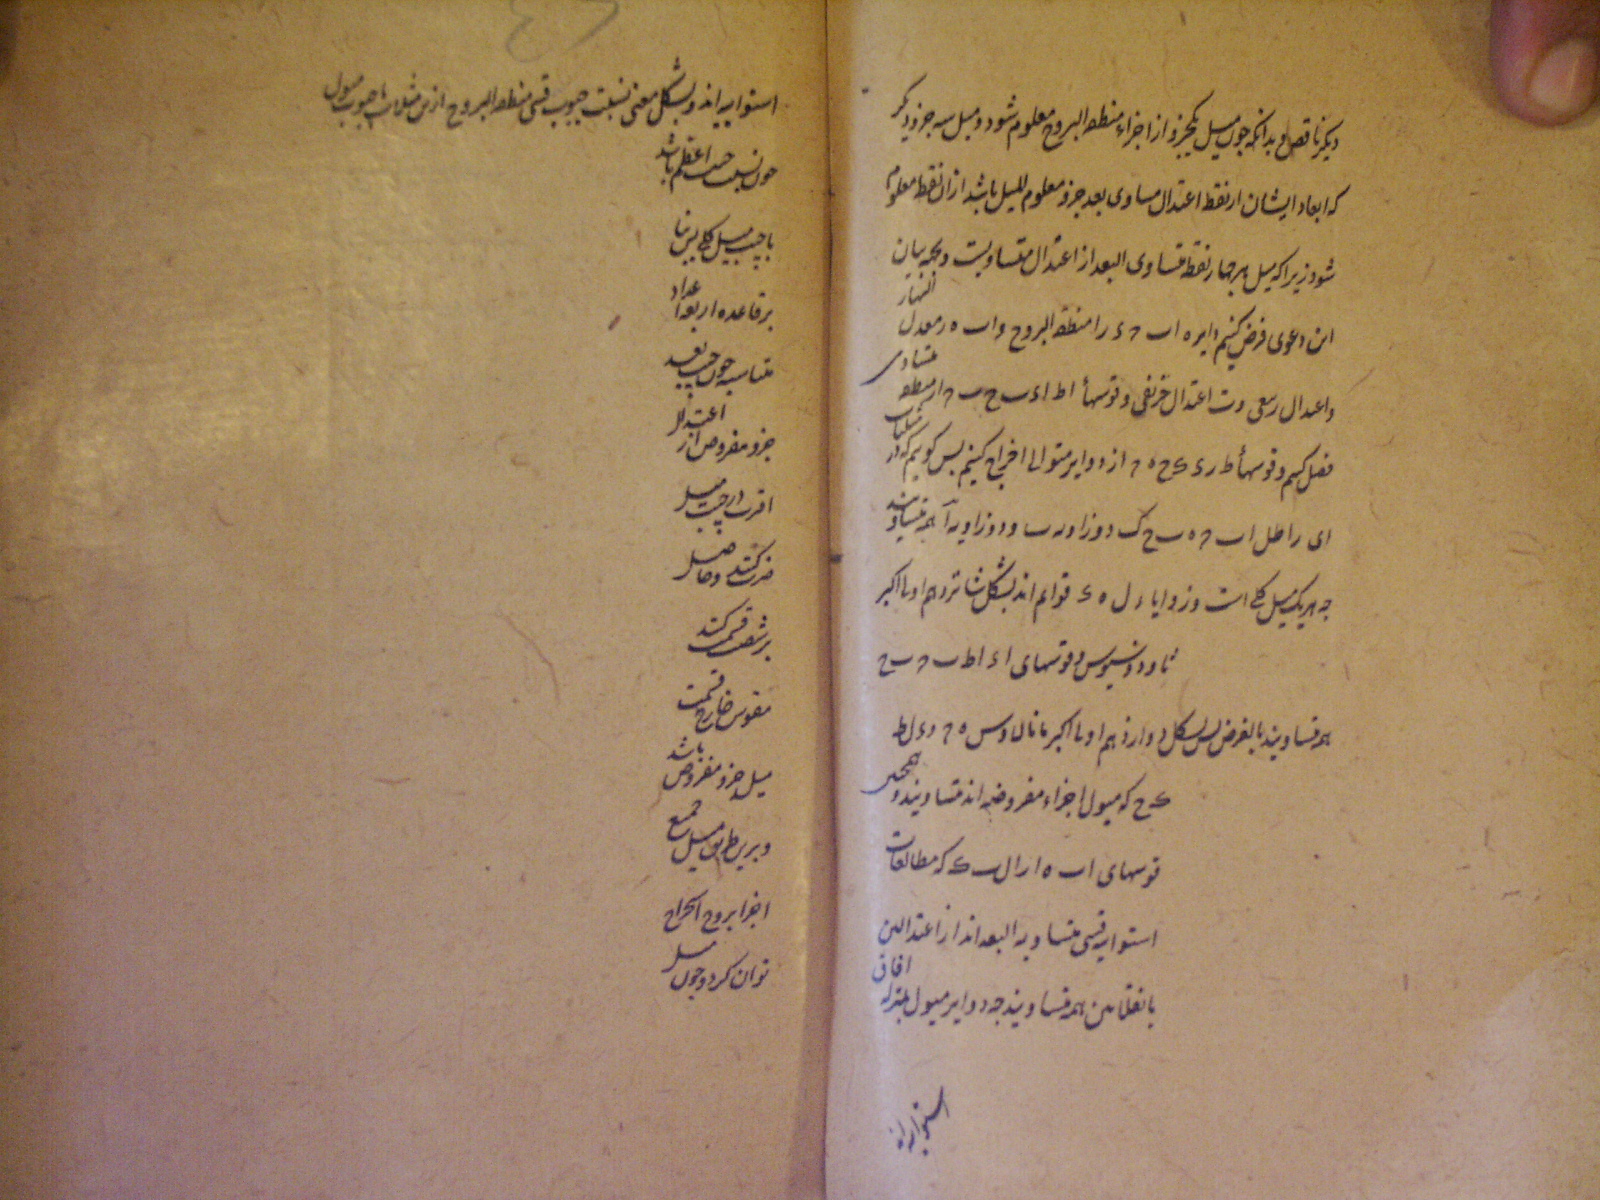 دیکر ناقص و بدانکه چون میل یکجزو از اجزاء منطقه البروج معلوم شود و میل سه جزو دیکر
که ابعاد ایشان از نقط اعتدال مساوی بعد جزو معلوم المیل باشد از ان نقط معلوم
شود زیرا که میل هر چهار نقطه متساوی البعد از اعتدال متساویست و بجهه بیان
این دعوی فرض کنیم دایره اب ج ء را منطقه البروج و اب ه ر معدل النهار
و اعتدال ربیعی و ب اعتدال خریفی و قوسهاء اط اء ب ح ب ج از منطقه متساوی
فصل کنیم و قوسهاء ط ر ء ک ح ه ج از دوایر متوالی اخراج کنیم پس کوییم که در مثلثات
ای را طل اب ج ه ب ح ک دو زاویه ب و دو زاویه آ همه متساویند
چه هر یک میل کلی است و زوایا ر ل ه ک قوایم اند بشکل شانزدهم اولی اکبر
ثاودوسیوس و قوسهای اء اط ب ج ب ح
همه متساویند بالفرض پس بشکل دوازدهم اولی اکر مانالاوس ه ج ر ء ل ط
ک ح که میول اجزاء مفروضه اند متساویند و همچنین
قوسهای اب ه ار ال ب ک که مطالعات
استوایه قسی متساویه البعد اند از اعتدالین
یا نقلابین همه متساویند چه دوایر میول بمنزله افاق
استوایی اند
استواییه اند و بشکل معنی نسبت جیوب قسی منطقه البروج ازین مثلثات با جیوب میول
چون نسبت جیب اعظم باشد
با جیب میل کلی پس بنا
بر قاعده اربعه اعداد
متناسبه چون جیب بعد
جزو مفروض از اعتدال
اقرب در جیب میل
ضرب کنند و حاصل
بر شصت قسمت کنند
مقوس خارج قسمت
میل جزو مفروض باشد
و برین طریق میل جمیع
اجزا بروج استخراج
توان کرد و چون میل